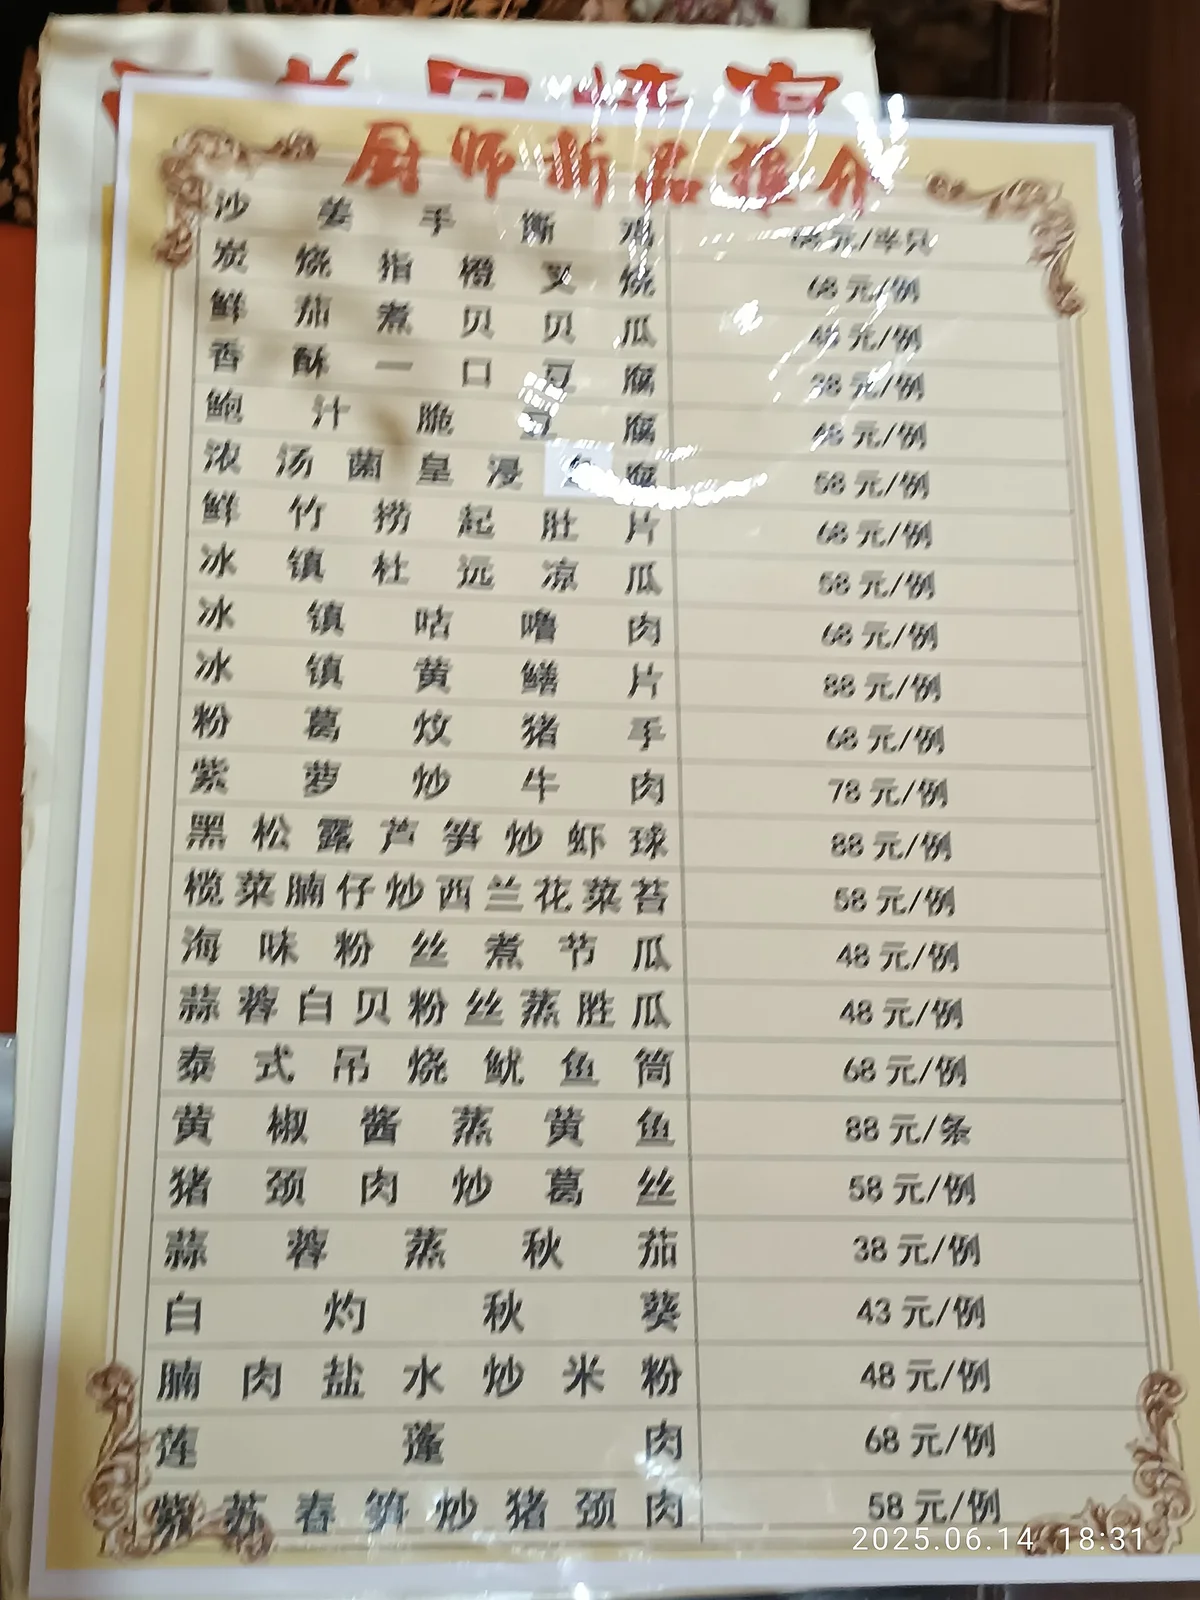 厨师新品推介
沙姜手撕鸡 元/半只
炭烧指橙叉烧 68元/例
鲜茄煮贝贝瓜 48元/例
香酥一口豆腐 38元/例
鲍汁脆豆腐 48元/例
浓汤菌皇浸鱼腐 58元/例
鲜竹捞起肚片 68元/例
冰镇杜远凉瓜 58元/例
冰镇咕噜肉 68元/例
冰镇黄鳝片 88元/例
粉葛炆猪手 68元/例
紫萝炒牛肉 78元/例
黑松露芦笋炒虾球 88元/例
榄菜腩仔炒西兰花菜苔 58元/例
海味粉丝煮节瓜 48元/例
蒜蓉白贝粉丝蒸胜瓜 48元/例
泰式吊烧鱿鱼筒 68元/例
黄椒酱蒸黄鱼 88元/条
猪颈肉炒葛丝 58元/例
蒜蓉蒸秋茄 38元/例
白灼秋葵 43元/例
腩肉盐水炒米粉 48元/例
莲蓬肉 68元/例
紫苏春笋炒猪颈肉 58元/例
2025.06.14 18:31